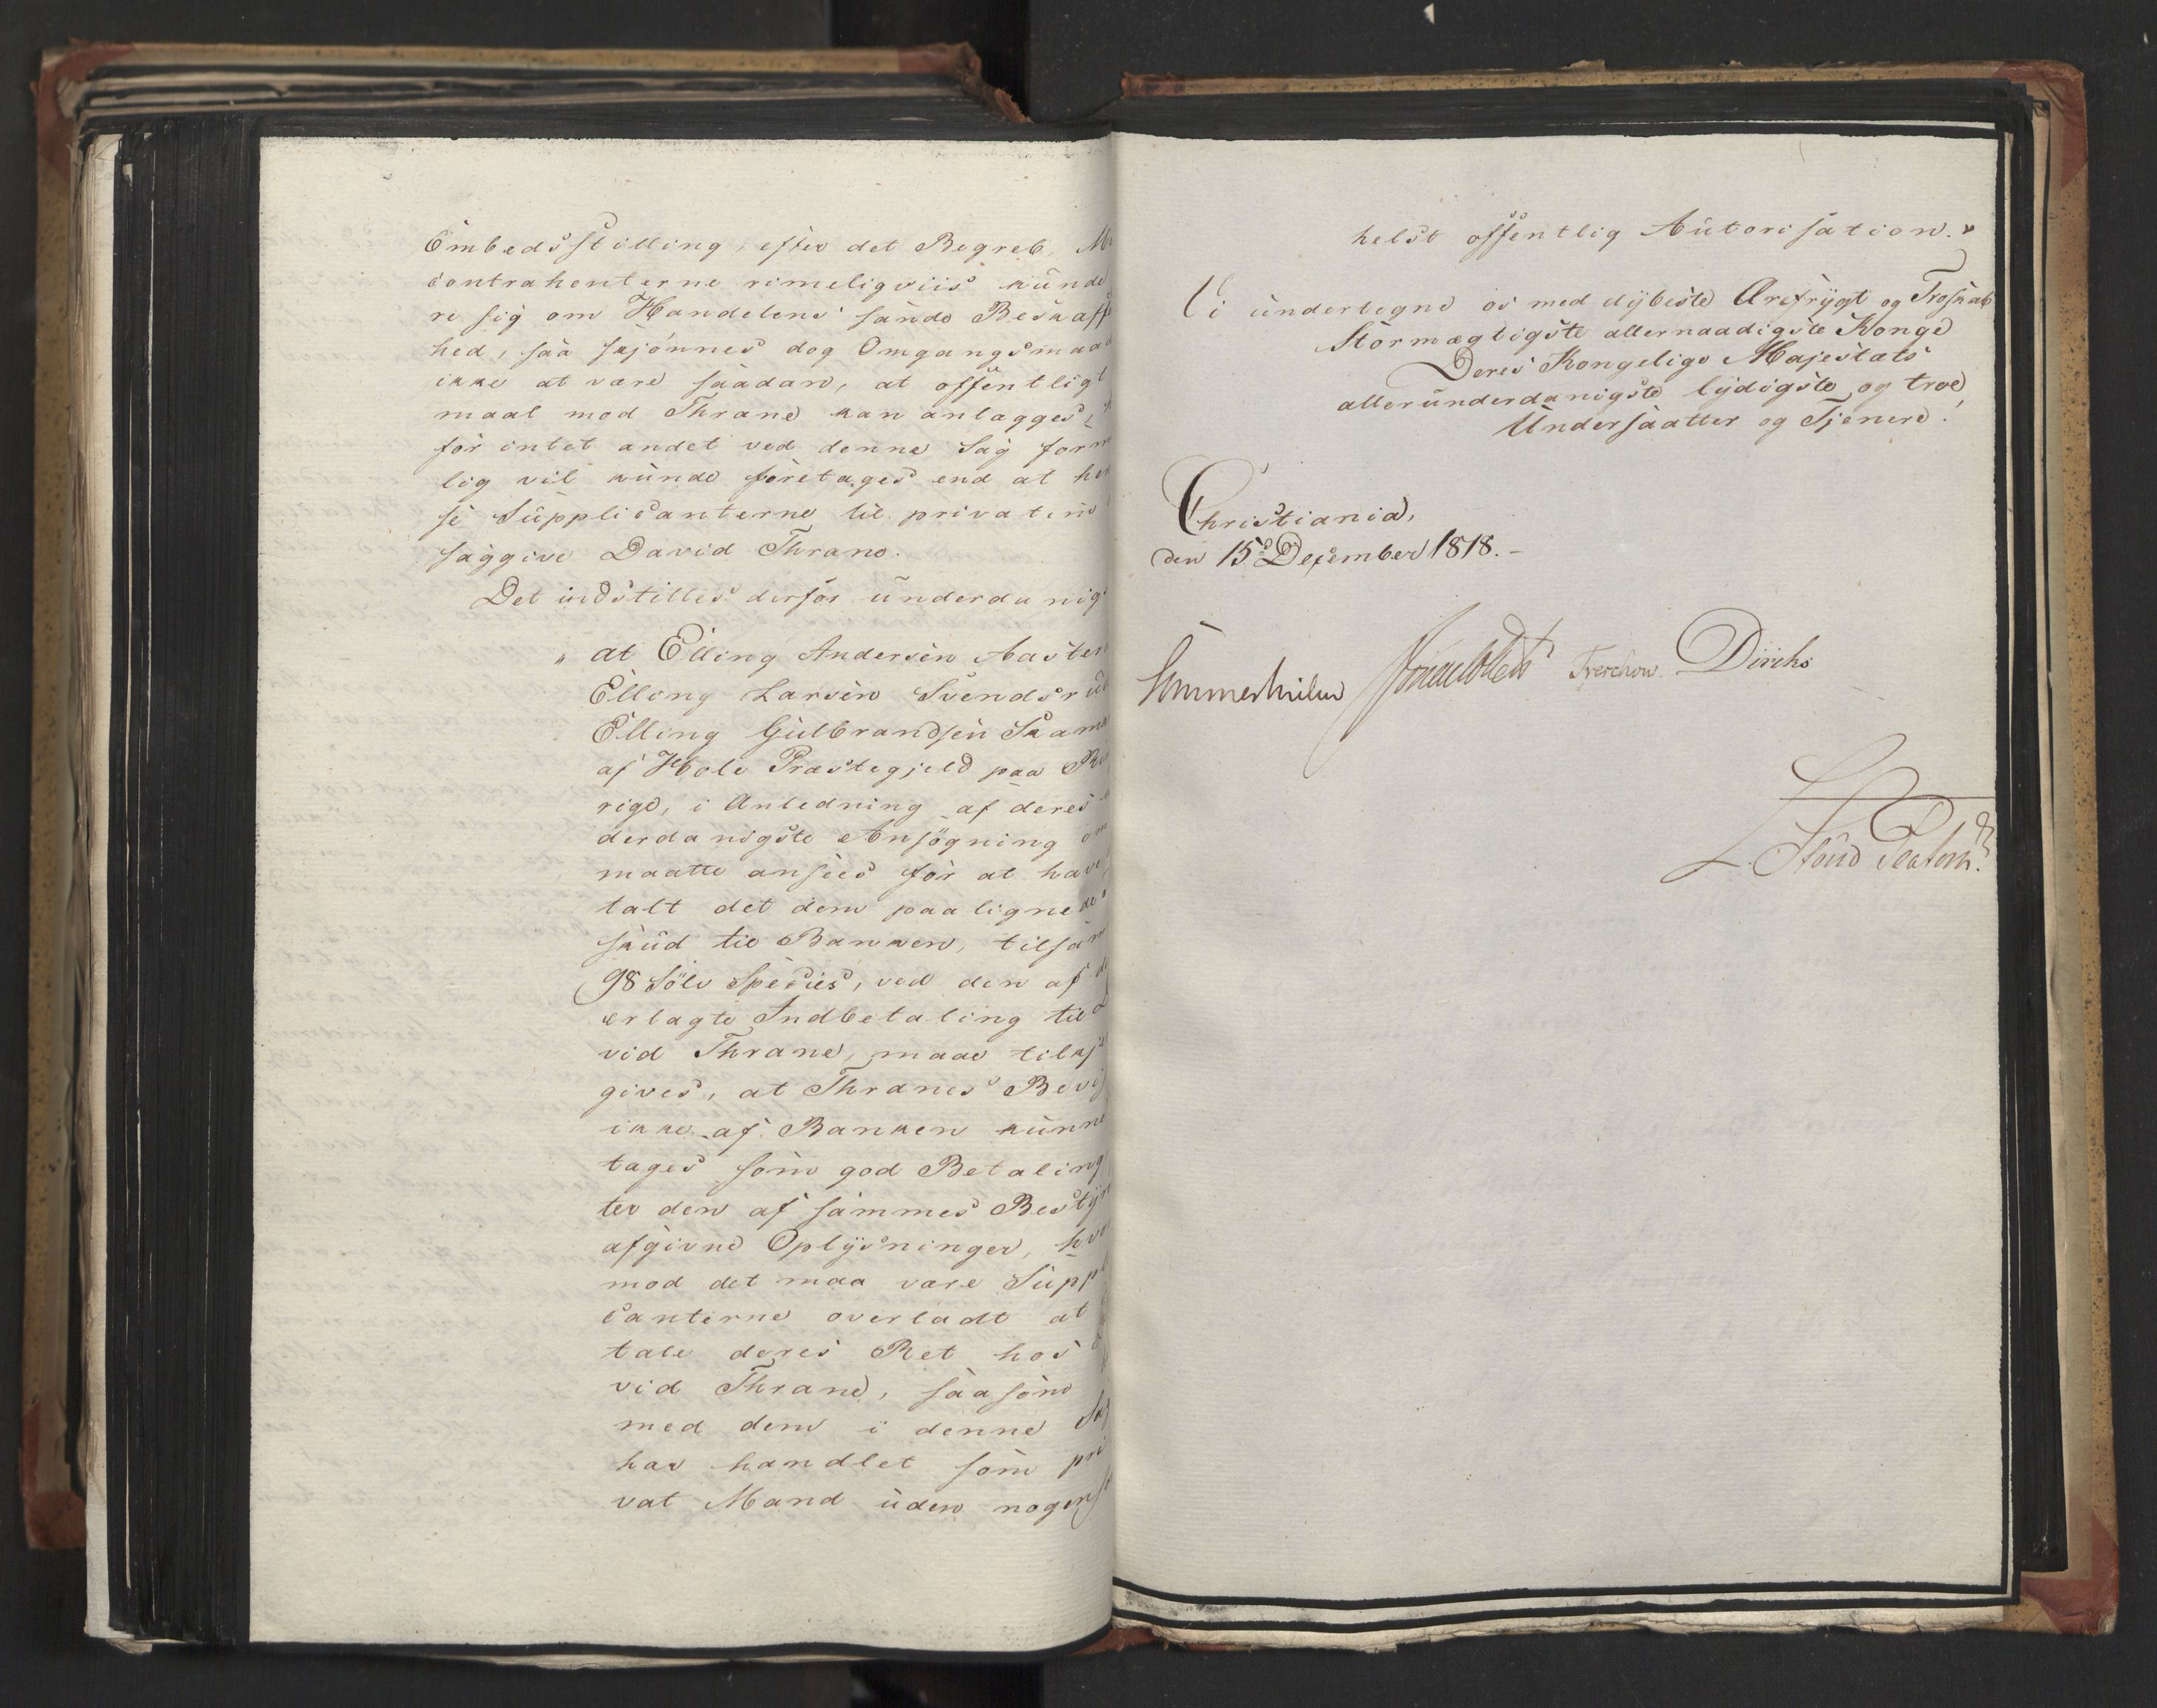 Embedsstilling, efter det Begreb,
Contrahenterne rimeligviis kunde
re sig om Handelens sande Beskaffe
hed, saa skjönnes dog Omgangsmaad
ikke at være saadan, at offentligt
maal mod Thrane kan anlægges,
for intet andet ved denne Sag form
lig vil kunde foretages end at hen
se Supplicanterne til privatim
saggive David Thrane.
Det indstilles derfor underdanigs
„ at Elling Andersen Aaster
Elling Larsen Svendsrud
Elling Gulbrandsen
af Hole Præstegjeld paa
rige, i Anledning af deres
derdanigste Ansögning om
maatte ansees for at have
talt det dem paalignede
skud til Banken, tilsam
98 Sölv Species, ved den af
erlagte Indbetaling til
vid Thrane, maae tilkj
gives, at Thranes Bevi
ikke af Banken kunne
tages som god Betaling,
ter den af sammes Bestyr
afgivne Oplysninger, hvor
mod det maa være Suppl
canterne overladt at
tale deres Ret hos
vid Thrane, saasom
med dem i denne Sag
har handlet som pri
vat Mand uden nogens
helst offentlig Autorisation."
Vi undertegne os med dybeste Ærefrygt og Troskab
Stormægtigste allernaadigste Konge
Deres Kongelige Majestæts
allerunderdanigste lydigste og troe
Undersaatter og Tjenere!
Christiania,
den 15d December 1818.-
Sommerhielm Treschow Diriks